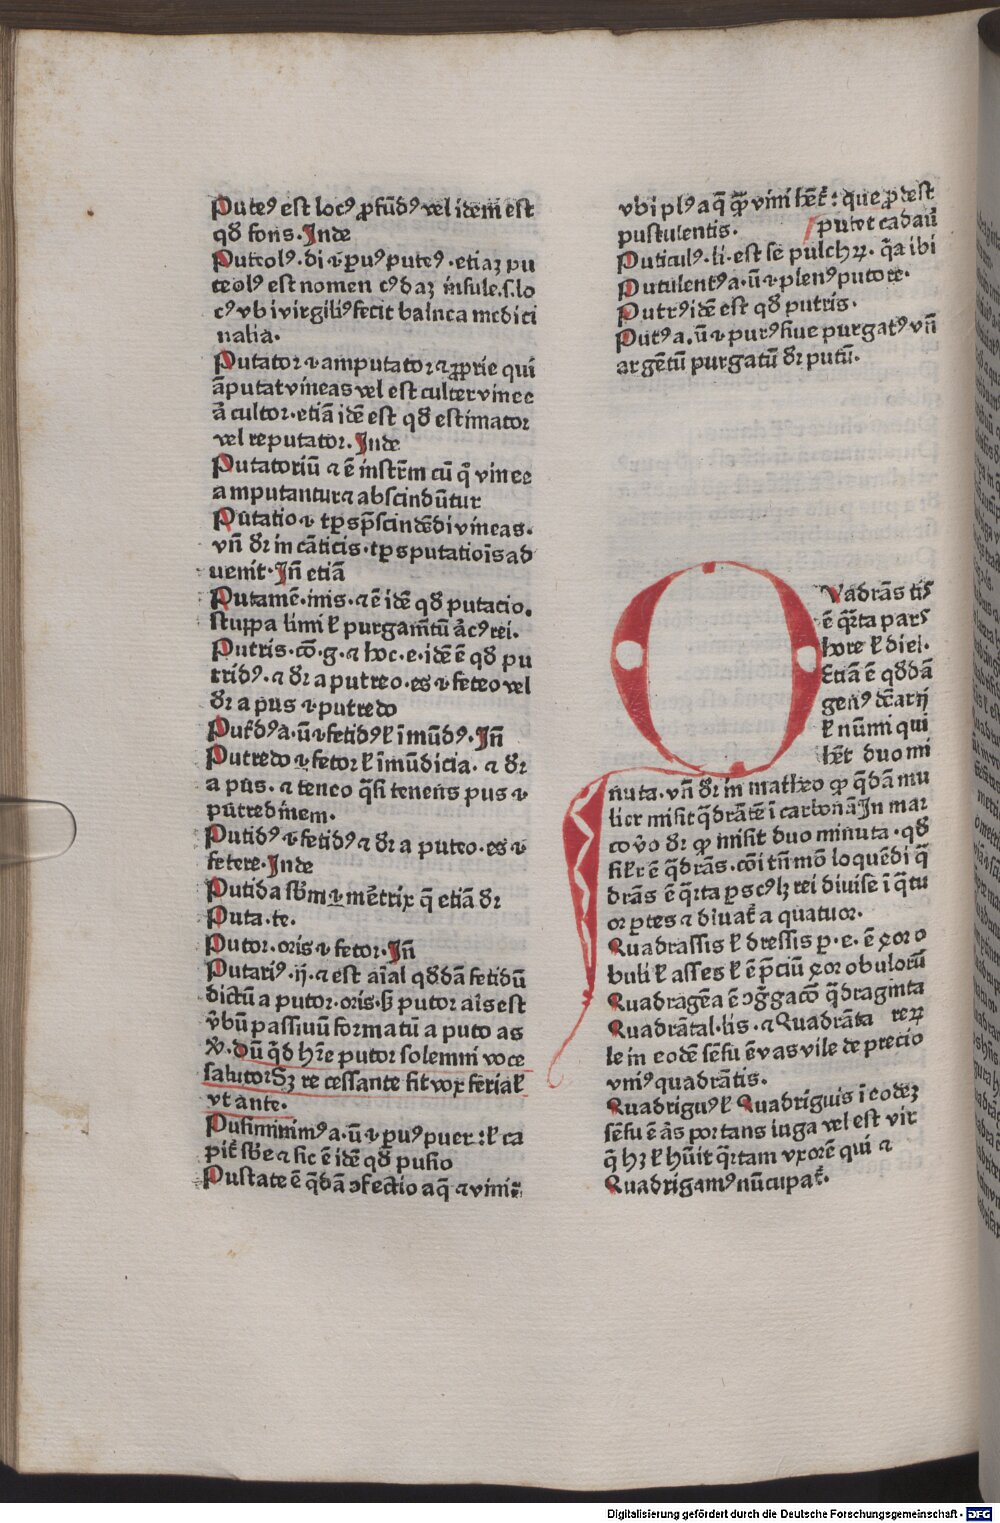 Puteꝰ est locꝰ ꝓfūdꝰ vel idem est
qđ fons. Inde
Puteolꝰ. di .i. ꝑuꝰ puteꝰ. etiaꝫ pu
teolꝰ est nomen cꝰdaꝫ insule .s. lo
cꝰ vbi virgiliꝰ fecit balnea medici
nalia.
Putator .i. amputator ⁊ ꝓprie qui
āputat vineas vel est cultor vinee
cultor. etiā idē est qđ estimator
vel reputator. Inde
Putatoriū ⁊ ē instr̄m cū q̄ vinee
amputantur ⁊ abscindūtur
Putatio .i. tꝑs p̄scindēdi vineas.
vn̄ dr̄ in cāticis. tꝑs putatiōis ad
uenit. Jn̄ etiā
Putamē. inis. ⁊ ē idē qđ putacio.
stuppa limi ł purgam̄tū rei.
Putris. cō. g. ⁊ hoc .e. idē ē qđ pu
tridꝰ. ⁊ dr̄ a putreo. es .i. feteo vel
dr̄ a pus .i. putredo
a. ū .i. fetidꝰ ł īmūdꝰ. Jn̄
Putredo .i. fetor ł īmūdicia. ⁊ dr̄
a pus. ⁊ teneo q̄si tenens pus .i.
putredinem.
Putidꝰ .i. fetidꝰ ⁊ dr̄ a puteo. es .i.
fetere. Inde
Putida sb̄m .i. mētrix q̄ etiā dr̄
Puta. te.
Putor. oris .i. fetor. Jn̄
Putariꝰ. ij. ⁊ est aīal qđdā fetidū
dictū a putor. oris. sꝫ putor aīs est
v̄bū passiuū formatū a puto as
Ꝟ. Dū q̄d hr̄e putor solemni voce
salutor Sꝫ re cessante fit vox ferialꝭ
vt ante.
Pusininimꝰ a. ū .i. ꝑuꝰ puer ł ca
sb̄e ⁊ sic ē idē qđ pusio
Pustate ē q̄dā ꝯfectio aq̄ ⁊ vini
vbi plꝰ aq̄ q̄ꝫ vini hēt: que ꝓdest
pustulentis. putet cadaū
Puticulꝰ. li. est se pulchꝝ. q̄a ibi
Putulentꝰ a. ū .i. plenꝰ putore.
Putrꝰ idē est qđ putris.
Putꝰ a. ū .i. purꝰ siue purgatꝰ vn̄
argētū purgatū dr̄ putū.
QVadrās tis
ē q̄rta pars
hore ł diei.
Etiā ē qđdā
genꝰ dēarij
ł nūmi qui
hēt duo mi
nuta. vn̄ dr̄ in matheo ꝙ q̄dā mu
lier misit q̄drātē ī carbonā In mar
co v̄o dr̄ ꝙ misit duo minuta. qđ
ē q̄drās. cōi tn̄ mō loquēdi q̄
drās ē q̄rta ꝑs cꝰlꝫ rei diuise ī q̄tu
or ꝑtes ⁊ diuat̄ a quatuor.
Quadrassis ł dressis p. e. ē ꝯor o
buli ł asses ł ē p̄ciū ꝯor obulorū
Quadragēa ē ꝯg̃gacō q̄draginta
Quadrātal. lis. ⁊ Quadrāta reꝝ
le in eodē sēsu ē vas vile de precio
vniꝰ quadrātis.
Quadrigꝰ ł Quadriguis ī eodeꝫ
sēsu ē as portans iuga vel est vir
q̄ hꝫ ł hūit q̄rtam vxorē qui ⁊
Quadrigamꝰ nūcupat̄.
Digitalisierung gefördert durch die Deutsche Forschungsgemeinschaft - DFG